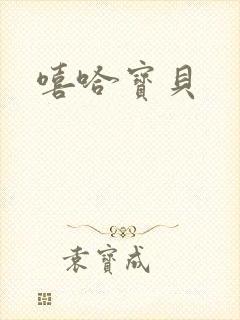 嘻哈寶貝
袁寶成